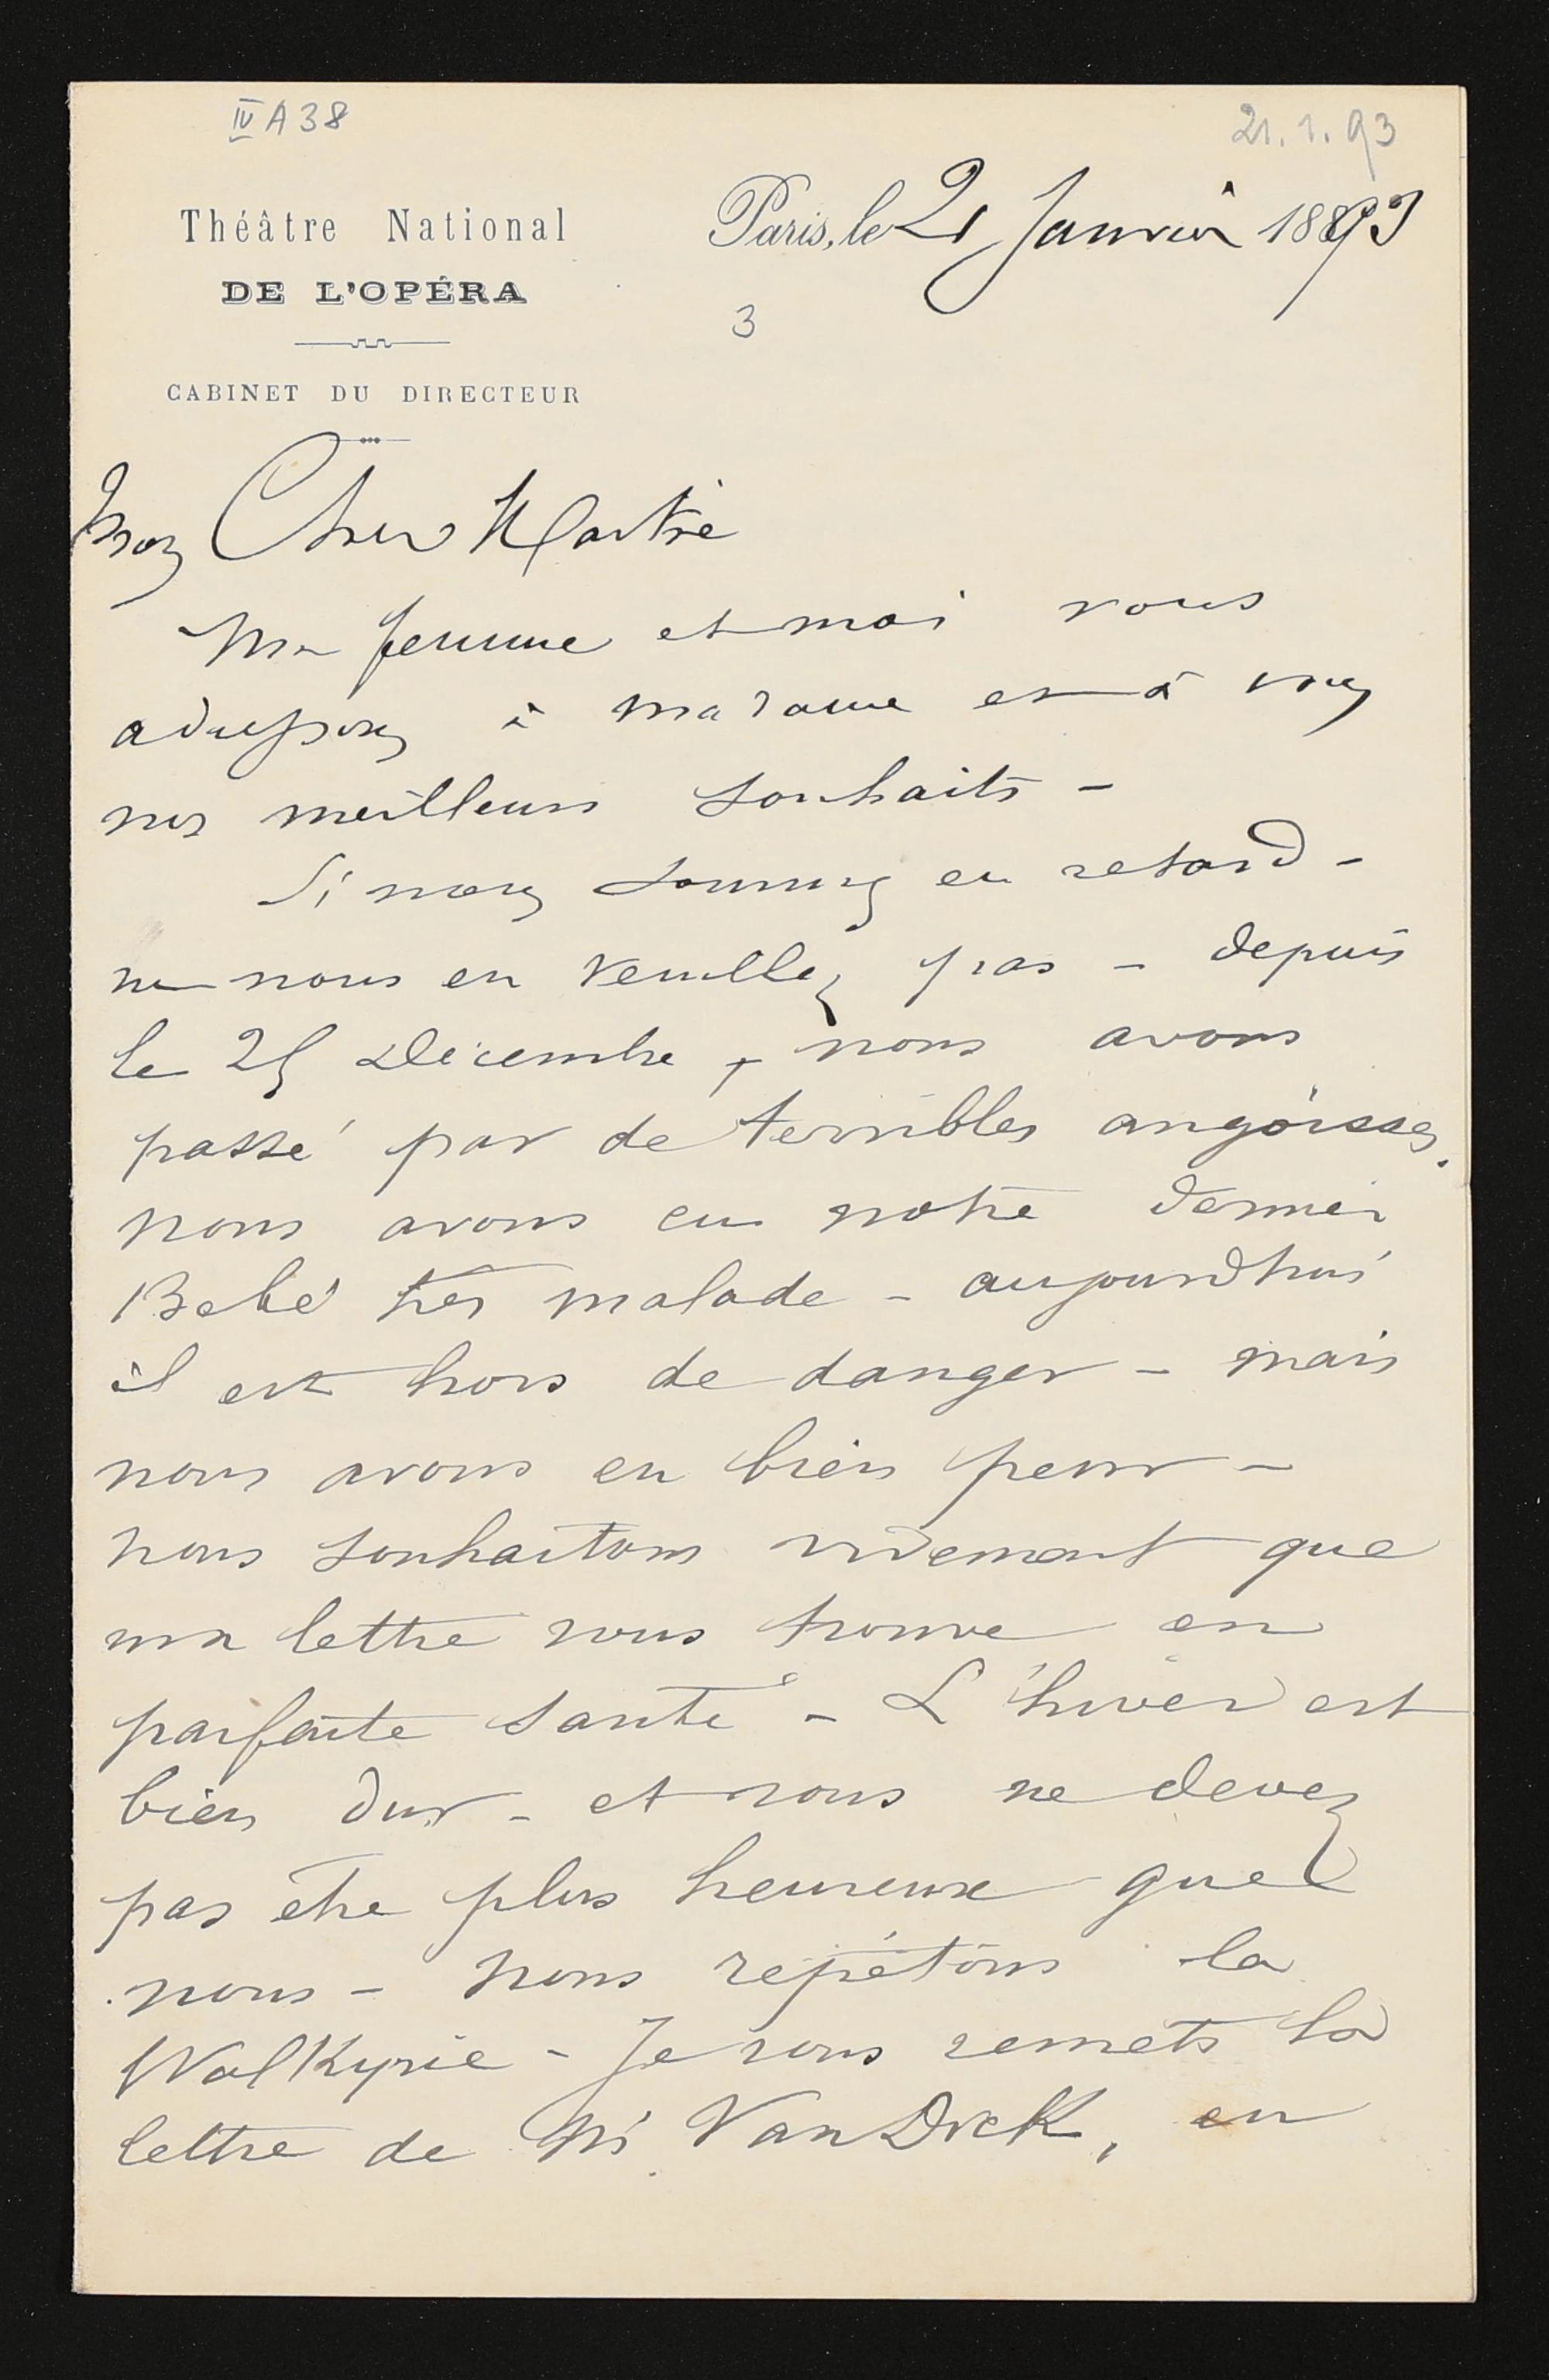 IV A 38
21. 1. 93
Théâtre National
DE L'OPÉRA
CABINET DU DIRECTEUR
Paris, le 21 Janvier 1893
3
Mon Cher Maitre
Ma femme et moi vous
adressons à madame et à vous
nos meilleurs souhaits -
Si nous sommes en retard -
ne nous en veuillez pas - depuis
le 25 Décembre, nous avons
passé par de terribles angoisses.
nous avons eu notre dernier
Bébé très malade - aujourd'hui
il est hors de danger - mais
nous avons eu bien peur -
nous souhaitons vivement que
ma lettre vous trouve en
parfaite santé - L'hiver est
bien dur - et vous ne devez
pas être plus heureux que
nous - nous répétons la
Walkyrie - Je vous remets la
lettre de Mr Van Dick, en